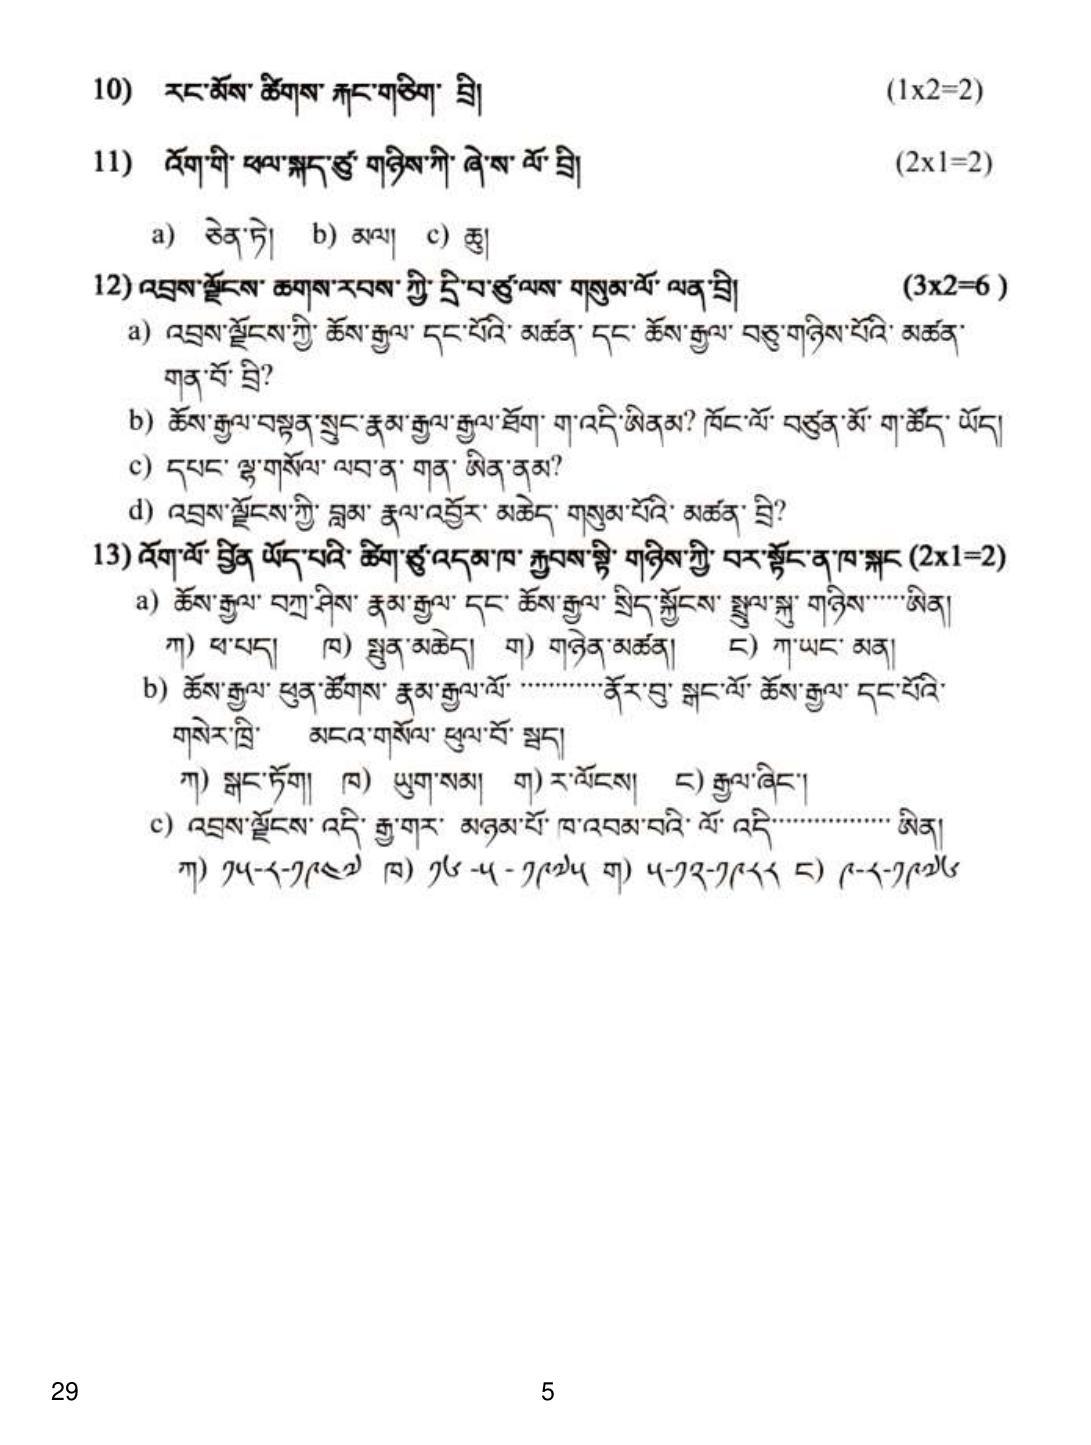 10) རང་མོས་ ཚིགས་ རྐང་གཅིག་ བྲི། (1x2=2)
11) འོག་གི་ ཕལ་སྐད་ཙུ་ གཉིས་ཀི་ ཞེ་ས་ ལོ་ བྲི། (2x1=2)
a) ཅེན་ཏེ། b) མལ། c) ཆུ།
12) འབྲས་ལྗོངས་ ཆགས་རབས་ ཀྱི་ དྲི་བ་ཙུ་ལས་ གསུམ་ལོ་ ལན་བྲི། (3x2=6 )
a) འབྲས་ལྗོངས་ཀྱི་ ཆོས་རྒྱལ་ དང་པོའི་ མཚན་ དང་ ཆོས་རྒྱལ་ བཅུ་གཉིས་པོའི་ མཚན་
གན་བོ་ བྲི?
b) ཆོས་རྒྱལ་བསྟན་སྲུང་རྣམ་རྒྱལ་རྒྱལ་ཐོག་ ག་འདི་ཨིནམ? ཁོང་ལོ་ བཙུན་མོ་ ག་ཚོད་ ཡོད།
c) དཔང་ ལྷ་གསོལ་ ལབ་ན་ གན་ ཨིན་ནམ?
d) འབྲས་ལྗོངས་ཀྱི་ བླམ་ རྣལ་འབྱོར་ མཆེད་ གསུམ་པོའི་ མཚན་ བྲི?
13) འོག་ལོ་ བྱིན་ ཡོད་པའི་ ཚིག་ཙུ་འདམ་ཁ་ རྐྱབས་སྟི་ གཉིས་ཀྱི་ བར་སྟོང་ན་ཁ་སྐང (2x1=2)
a) ཆོས་རྒྱལ་ བཀྲ་ཤིས་ རྣམ་རྒྱལ་ དང་ ཆོས་རྒྱལ་ སྲིད་སྐྱོངས་ སྤྲུལ་སྐུ་ གཉིས······ཨིན།
ཀ) ཕ་པད། ཁ) སྤུན་མཆེད། ག) གཉེན་མཚན། ང) ཀ་ཡང་ མན།
b) ཆོས་རྒྱལ་ ཕུན་ཚོགས་ རྣམ་རྒྱལ་ལོ་ ············ནོར་བུ་ སྒང་ལོ་ ཆོས་རྒྱལ་ དང་པོའི་
གསེར་ཁྲི་ མངའ་གསོལ་ ཕུལ་བོ་ སྦད།
ཀ) སྒང་ཏོག། ཁ) ཡུག་སམ། ག) ར་ལོངས། ང) རྒྱལ་ཞིང་།
c) འབྲས་ལྗོངས་ འདི་ རྒྱ་གར་ མཉམ་པོ་ ཁ་འབམ་བའི་ ལོ་ འདི················· ཨིན།
ཀ) ༡༥-༨-༡༩༤༧ ཁ) ༡༦ -༥ - ༡༩༧༥ ག) ༥-༡༢-༡༩༨༨ ང) ༩-༨-༡༩༧༦
29 5